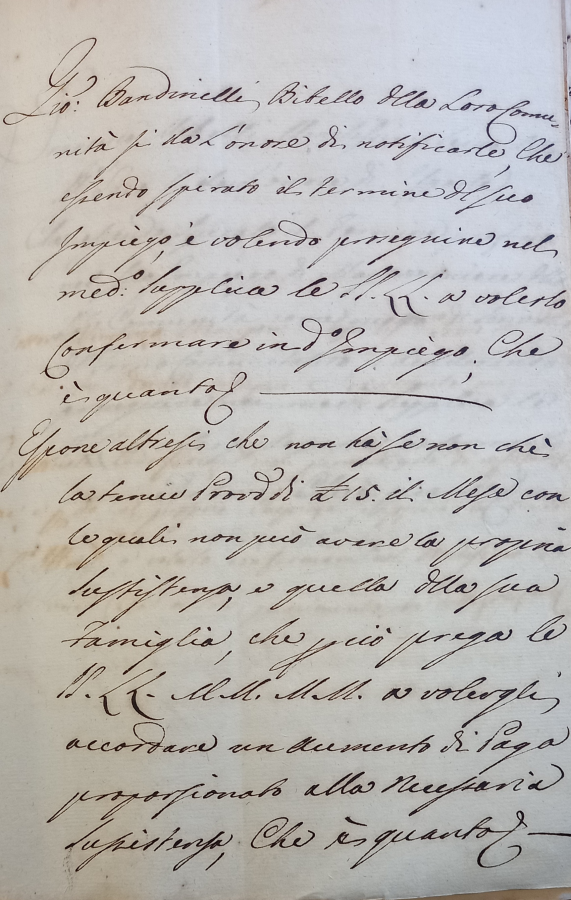 Gio: Bandinelli Bibello dlla Loro Comu-
nità si da L'onore di notificarle, Che
essendo spirato il termine del suo
Impiego, e volendo proseguire nel
med:o supplica le SS. LL. a volerlo
Confermare in d:o Impiego; Che
è quanto
Espone altresi che non hà se non chè
la tenue Provd di £ 15. il Mese con
le quali non può avere la propria
sussistenza, e quella dlla sua
Famiglia, che più prega le
SS. LL. M.M. M.M. a volergli
accordare un Aumento di Paga
proporzionato alla Necessaria
sussistenza, Che è quanto